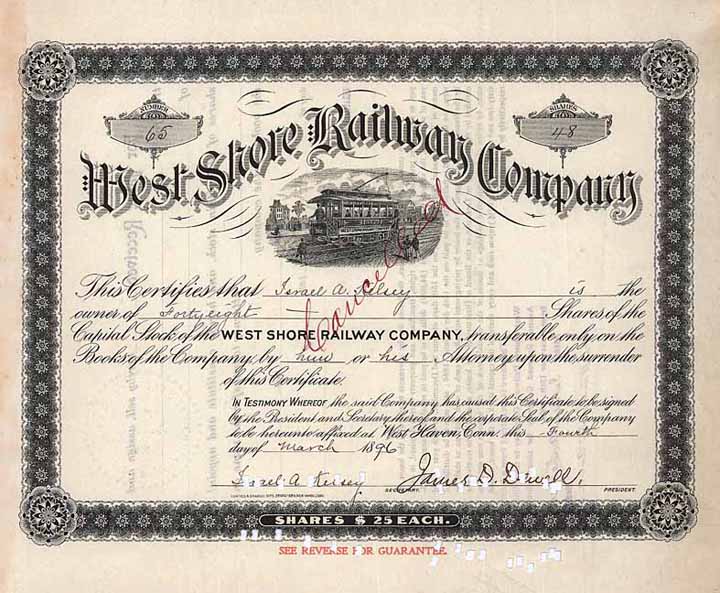 NUMBER
65
SHARES
48
West Shore Railway Company
Cancelled
This Certifies that Israel A. Kelsey is the
owner of Forty eight Shares of the
Capital Stock of the WEST SHORE RAILWAY COMPANY, transferable only on the
Books of the Company by him or his Attorney upon the surrender
of this Certificate.
IN TESTIMONY WHEREOF the said Company has caused this Certificate to be signed
by the President and Secretary thereof and the corporate Seal of the Company
to be hereunto affixed at West Haven, Conn. this Fourth
day of March 1896
Israel A. Kelsey SECRETARY. James D. Dewell, PRESIDENT.
SHARES $ 25 EACH.
SEE REVERSE FOR GUARANTEE.